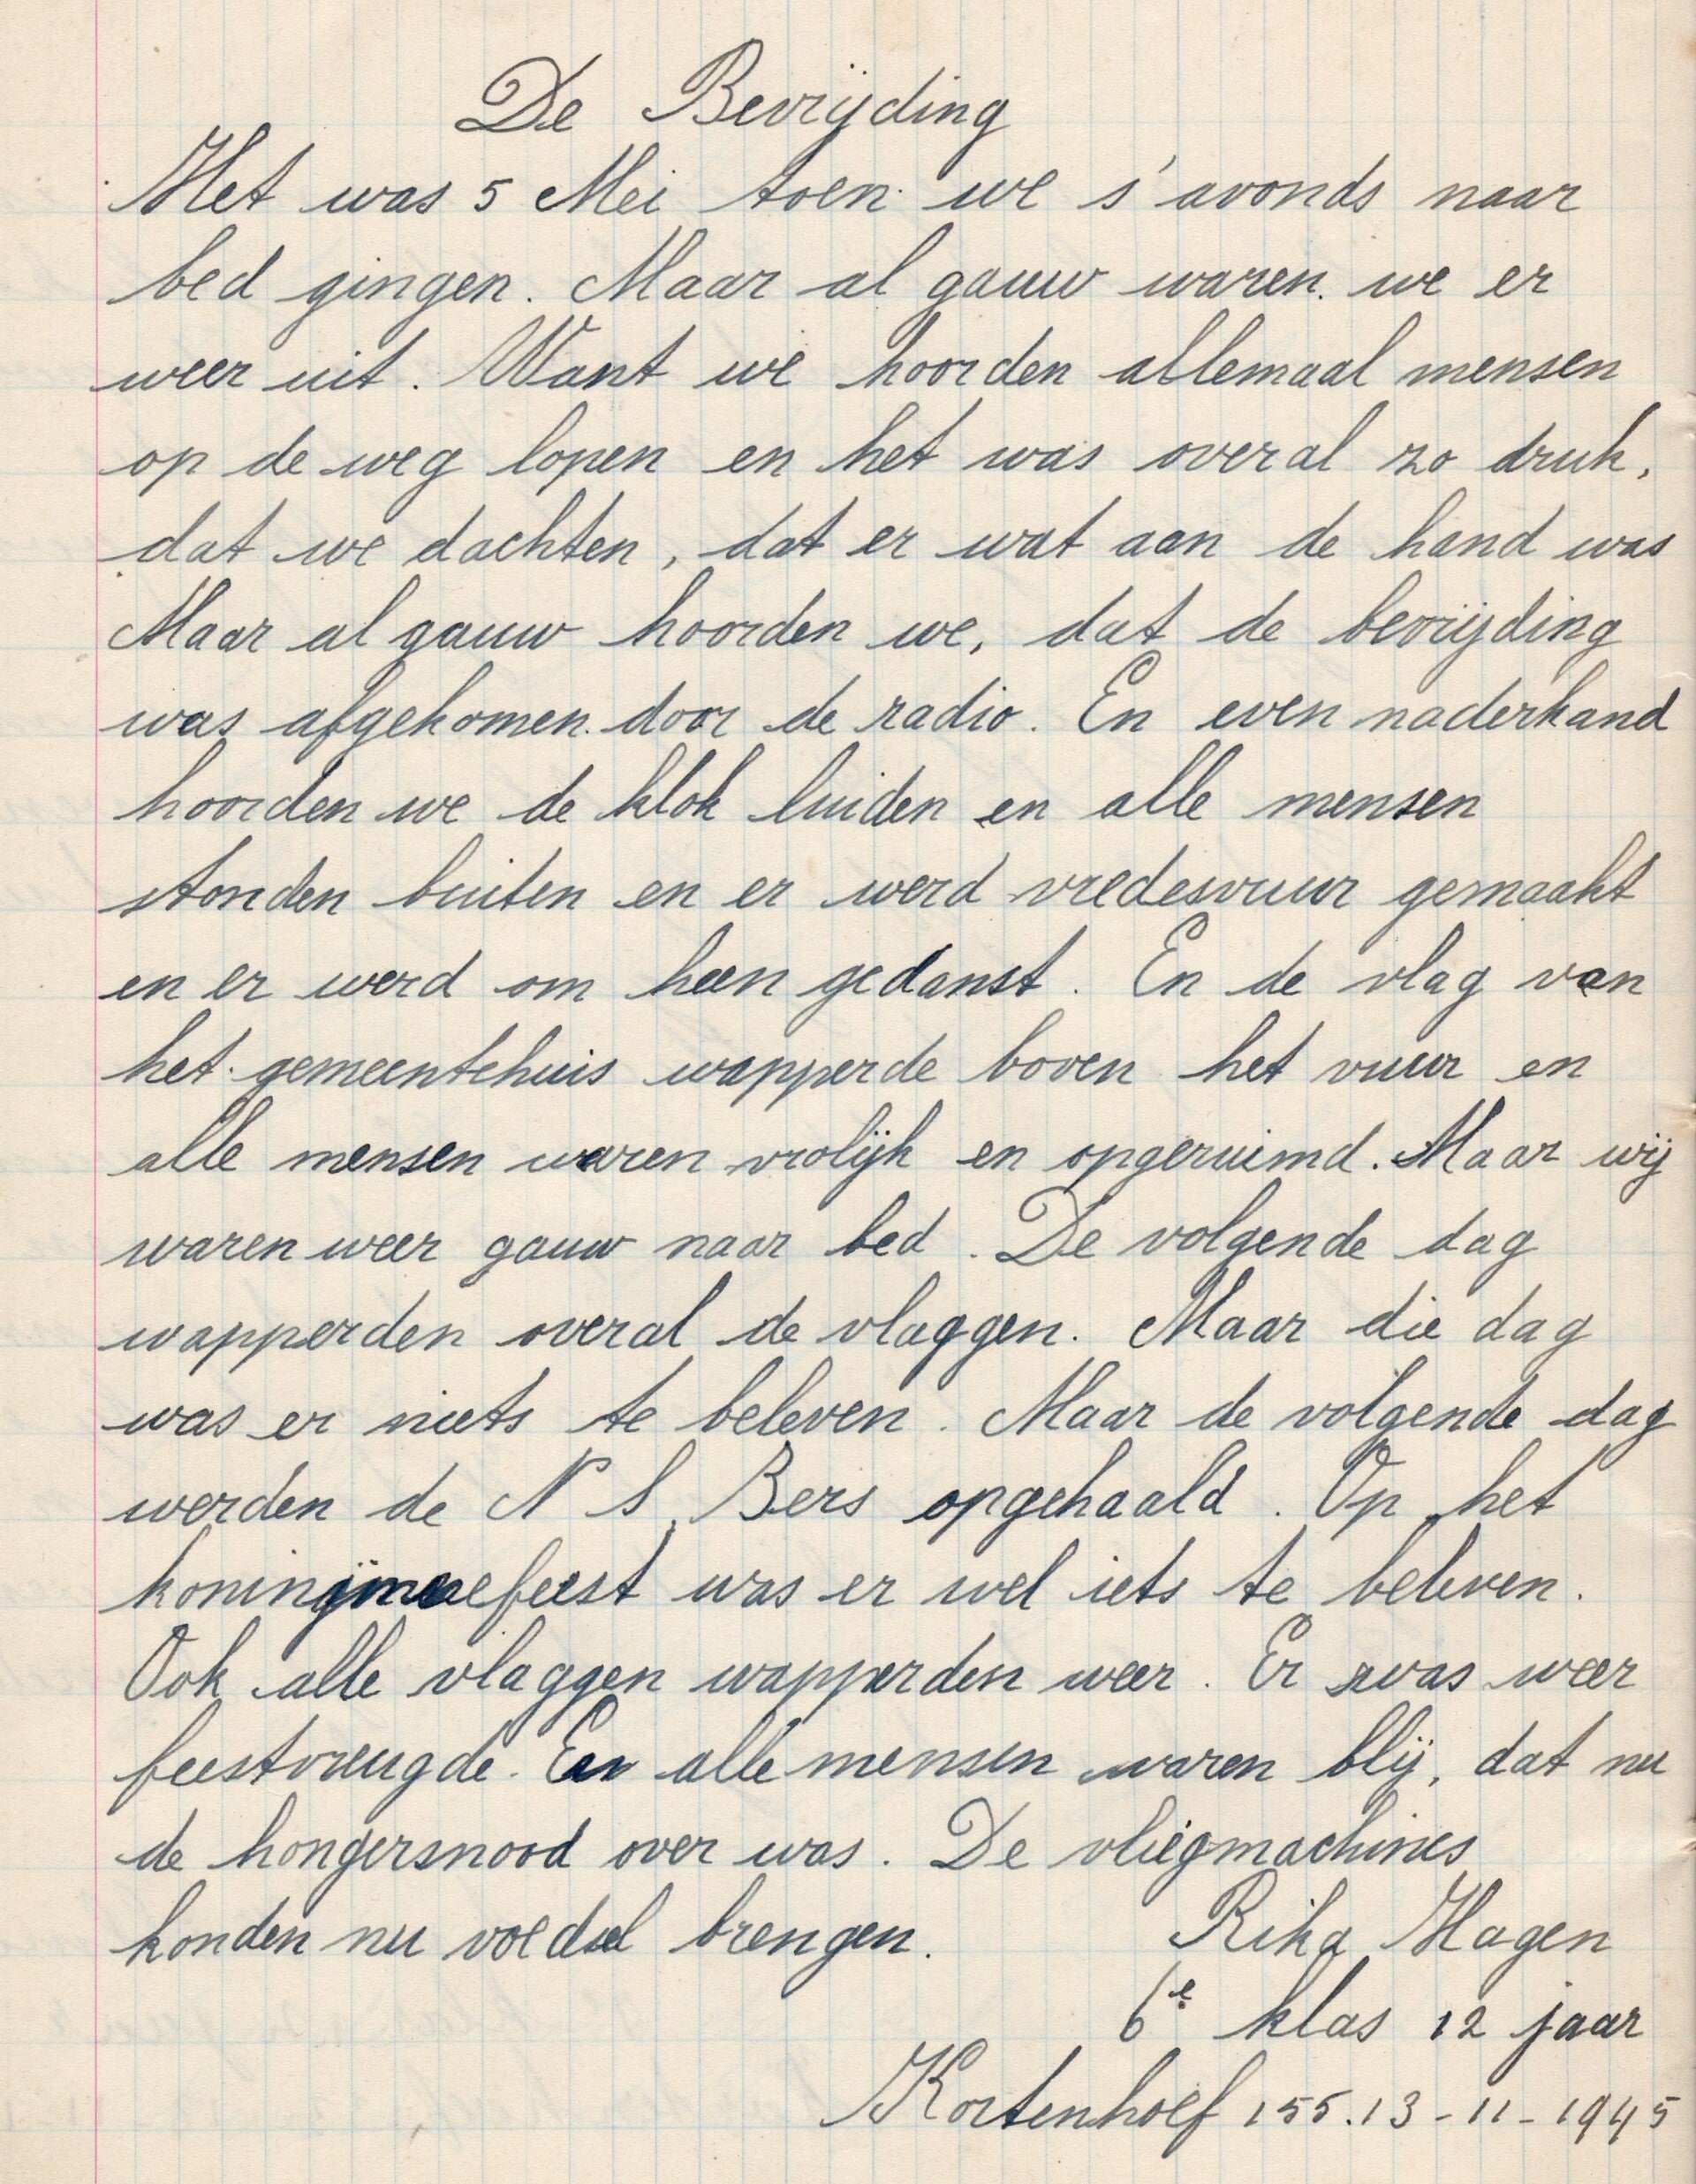 De Bevrijding
Het was 5 Mei toen we s'avonds naar
bed gingen. Maar al gauw waren we er
weer uit. Want we hoorden allemaal mensen
op de weg lopen en het was overal zo druk,
dat we dachten, dat er wat aan de hand was
Maar al gauw hoorden we, dat de bevrijding
was afgekomen door de radio. En even naderhand
hoorden we de klok luiden en alle mensen
stonden buiten en er werd vredesvuur gemaakt
en er werd om heen gedanst. En de vlag van
het gemeentehuis wapperde boven het vuur en
alle mensen waren vrolijk en opgeruimd. Maar wij
waren weer gauw naar bed. De volgende dag
wapperden overal de vlaggen. Maar die dag
was er niets te beleven. Maar de volgende dag
werden de N S Bers opgehaald. Op het
was er wel iets te beleven.
Ook alle vlaggen wapperden weer. Er was weer
feestvreugde. En alle mensen waren blij, dat nu
de hongersnood over was. De vliegmachines
konden nu voedsel brengen. Rika Hagen
6e klas 12 jaar
Kortenhoef 155. 13-11-1945